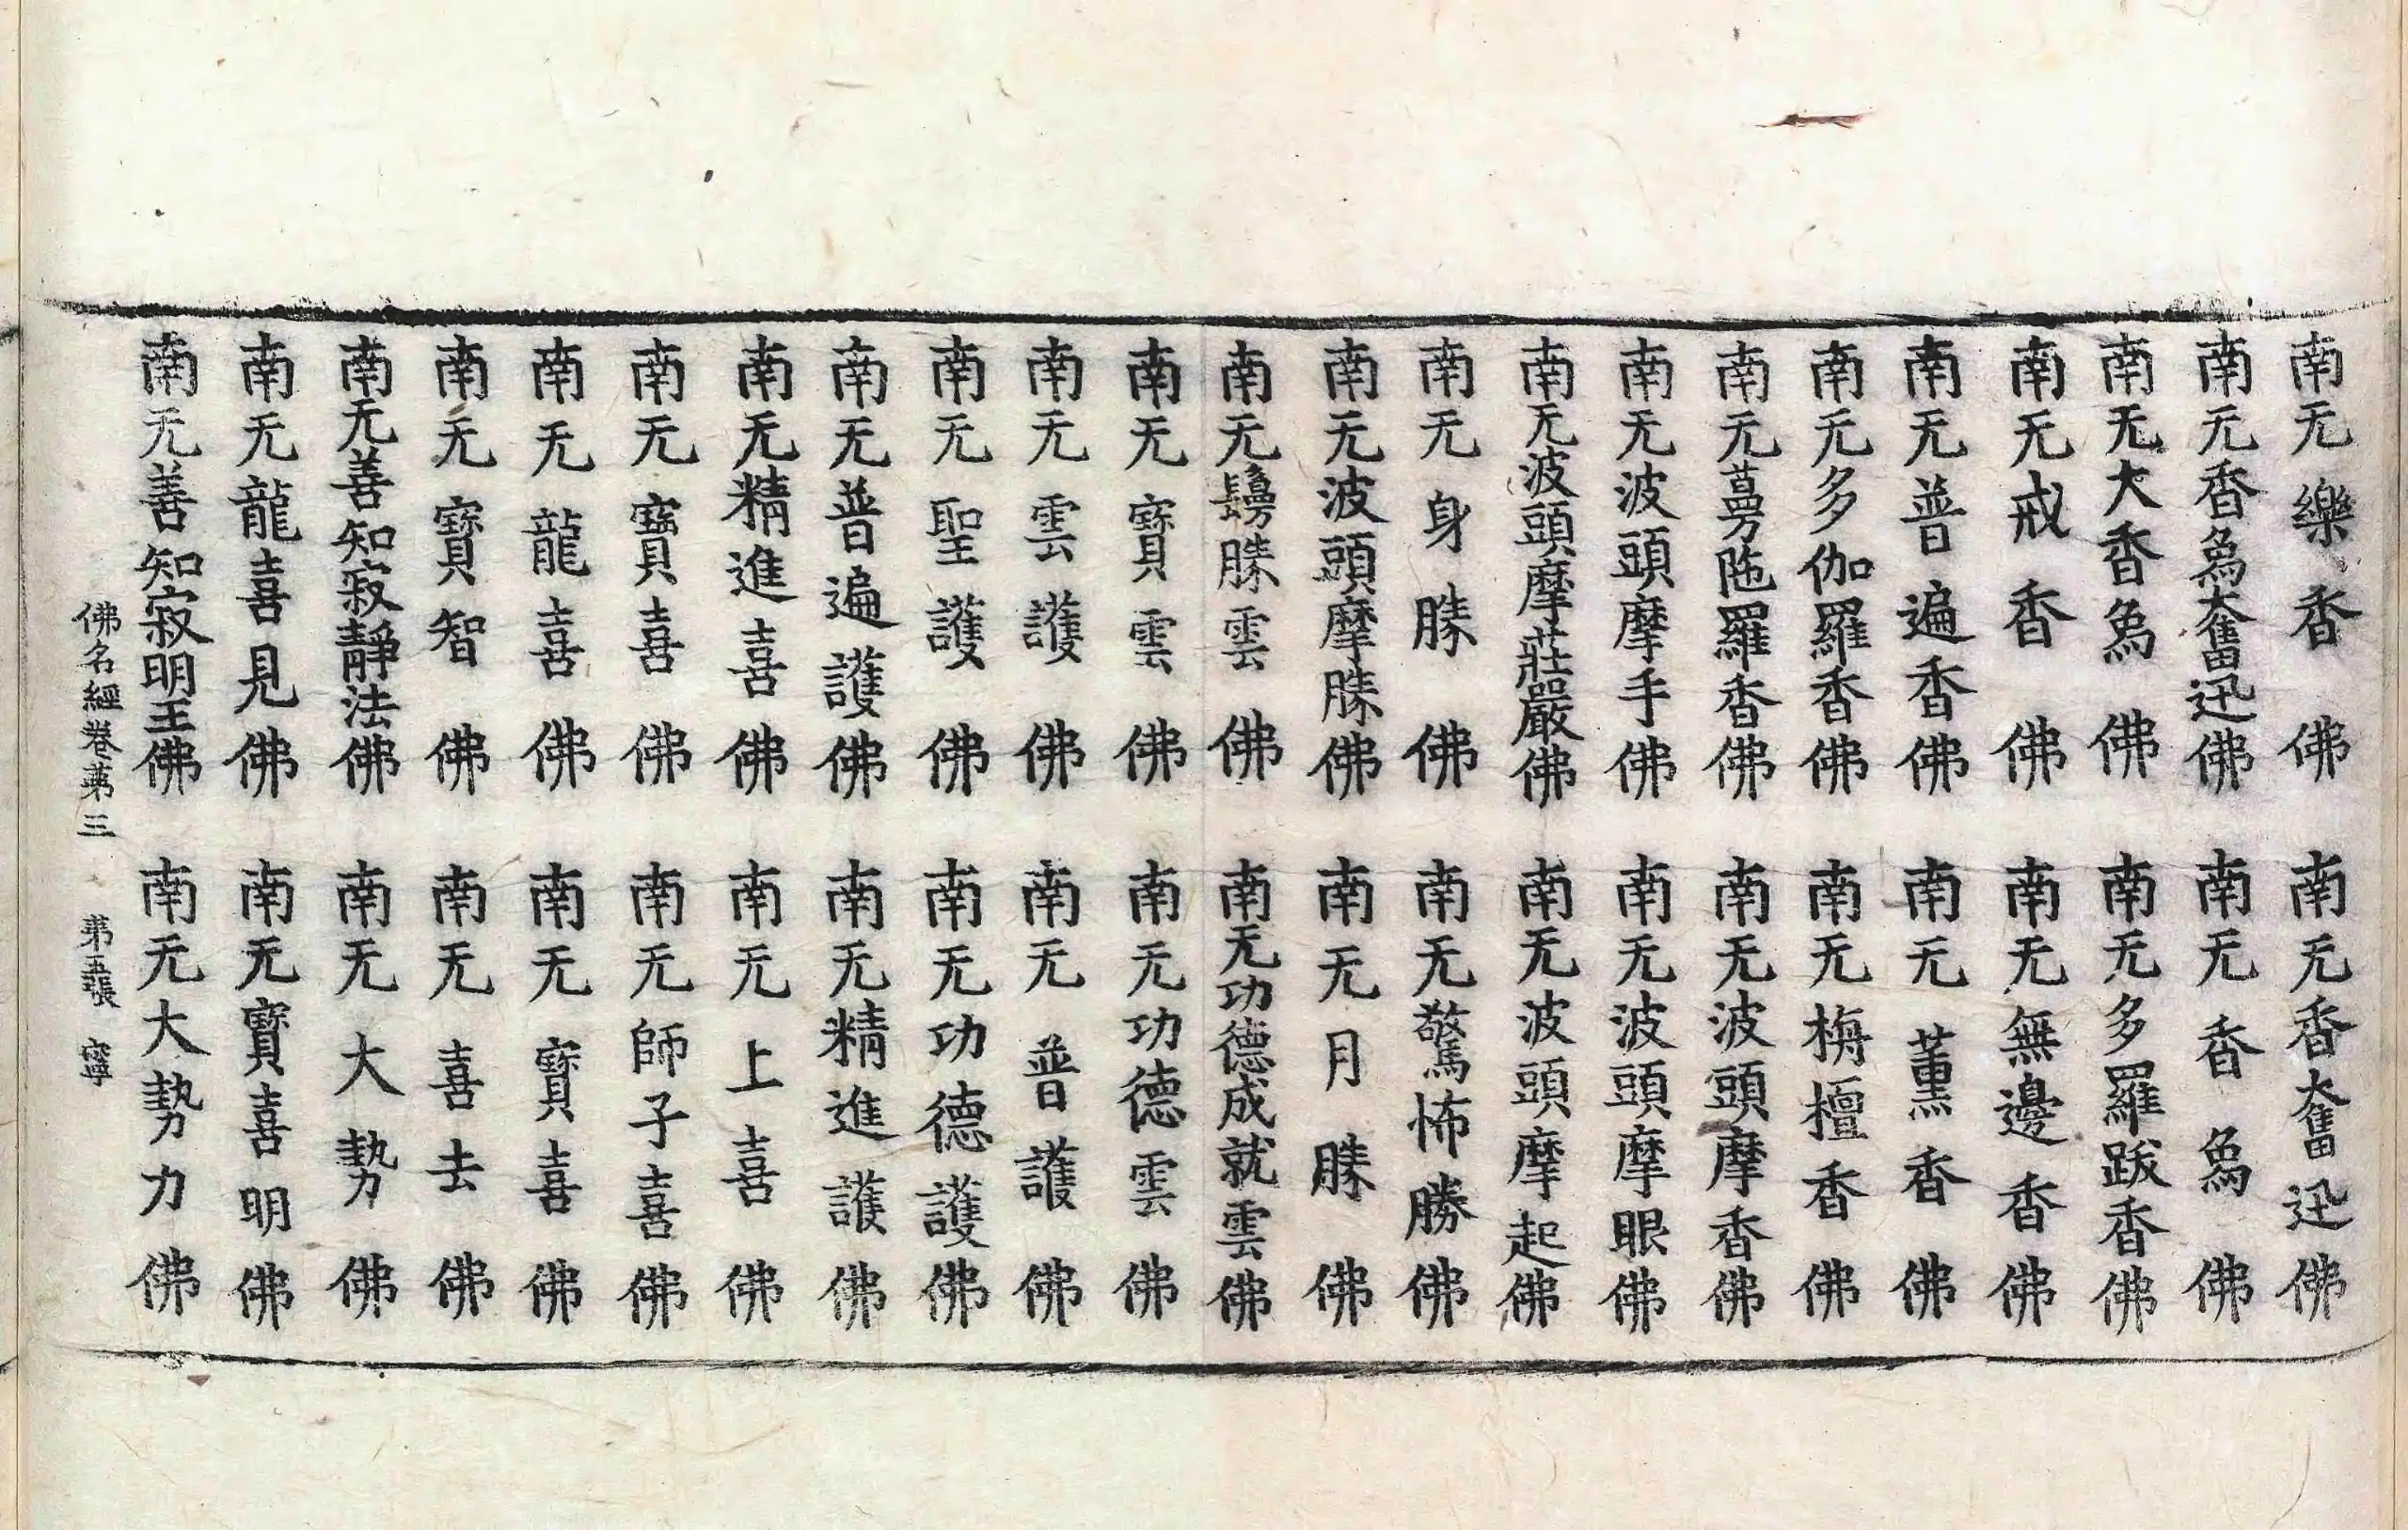 南无樂香佛 南无香奮迅佛
南无香烏奮迅佛 南无香烏佛
南无大香烏佛 南无多羅跋香佛
南无戒香佛 南无無邊香佛
南无普遍香佛 南无薰香佛
南无多伽羅香佛 南无栴檀香佛
南无蔓陁羅香佛 南无波頭摩香佛
南无波頭摩手佛 南无波頭摩眼佛
南无波頭摩莊嚴佛 南无波頭摩起佛
南无身勝佛 南无驚怖勝佛
南无波頭摩勝佛 南无月勝佛
南无鬘勝雲佛 南无功德成就雲佛
南无寶雲佛 南无功德雲佛
南无雲護佛 南无普護佛
南无聖護佛 南无功德護佛
南无普遍護佛 南无精進護佛
南无精進喜佛 南无上喜佛
南无寶喜佛 南无師子喜佛
南无龍喜佛 南无寶喜佛
南无寶智佛 南无喜去佛
南无善知寂靜法佛 南无大勢佛
南无龍喜見佛 南无寶喜明佛
南无善知寂明王佛 南无大勢力佛
佛名經卷第三 第五張 寧